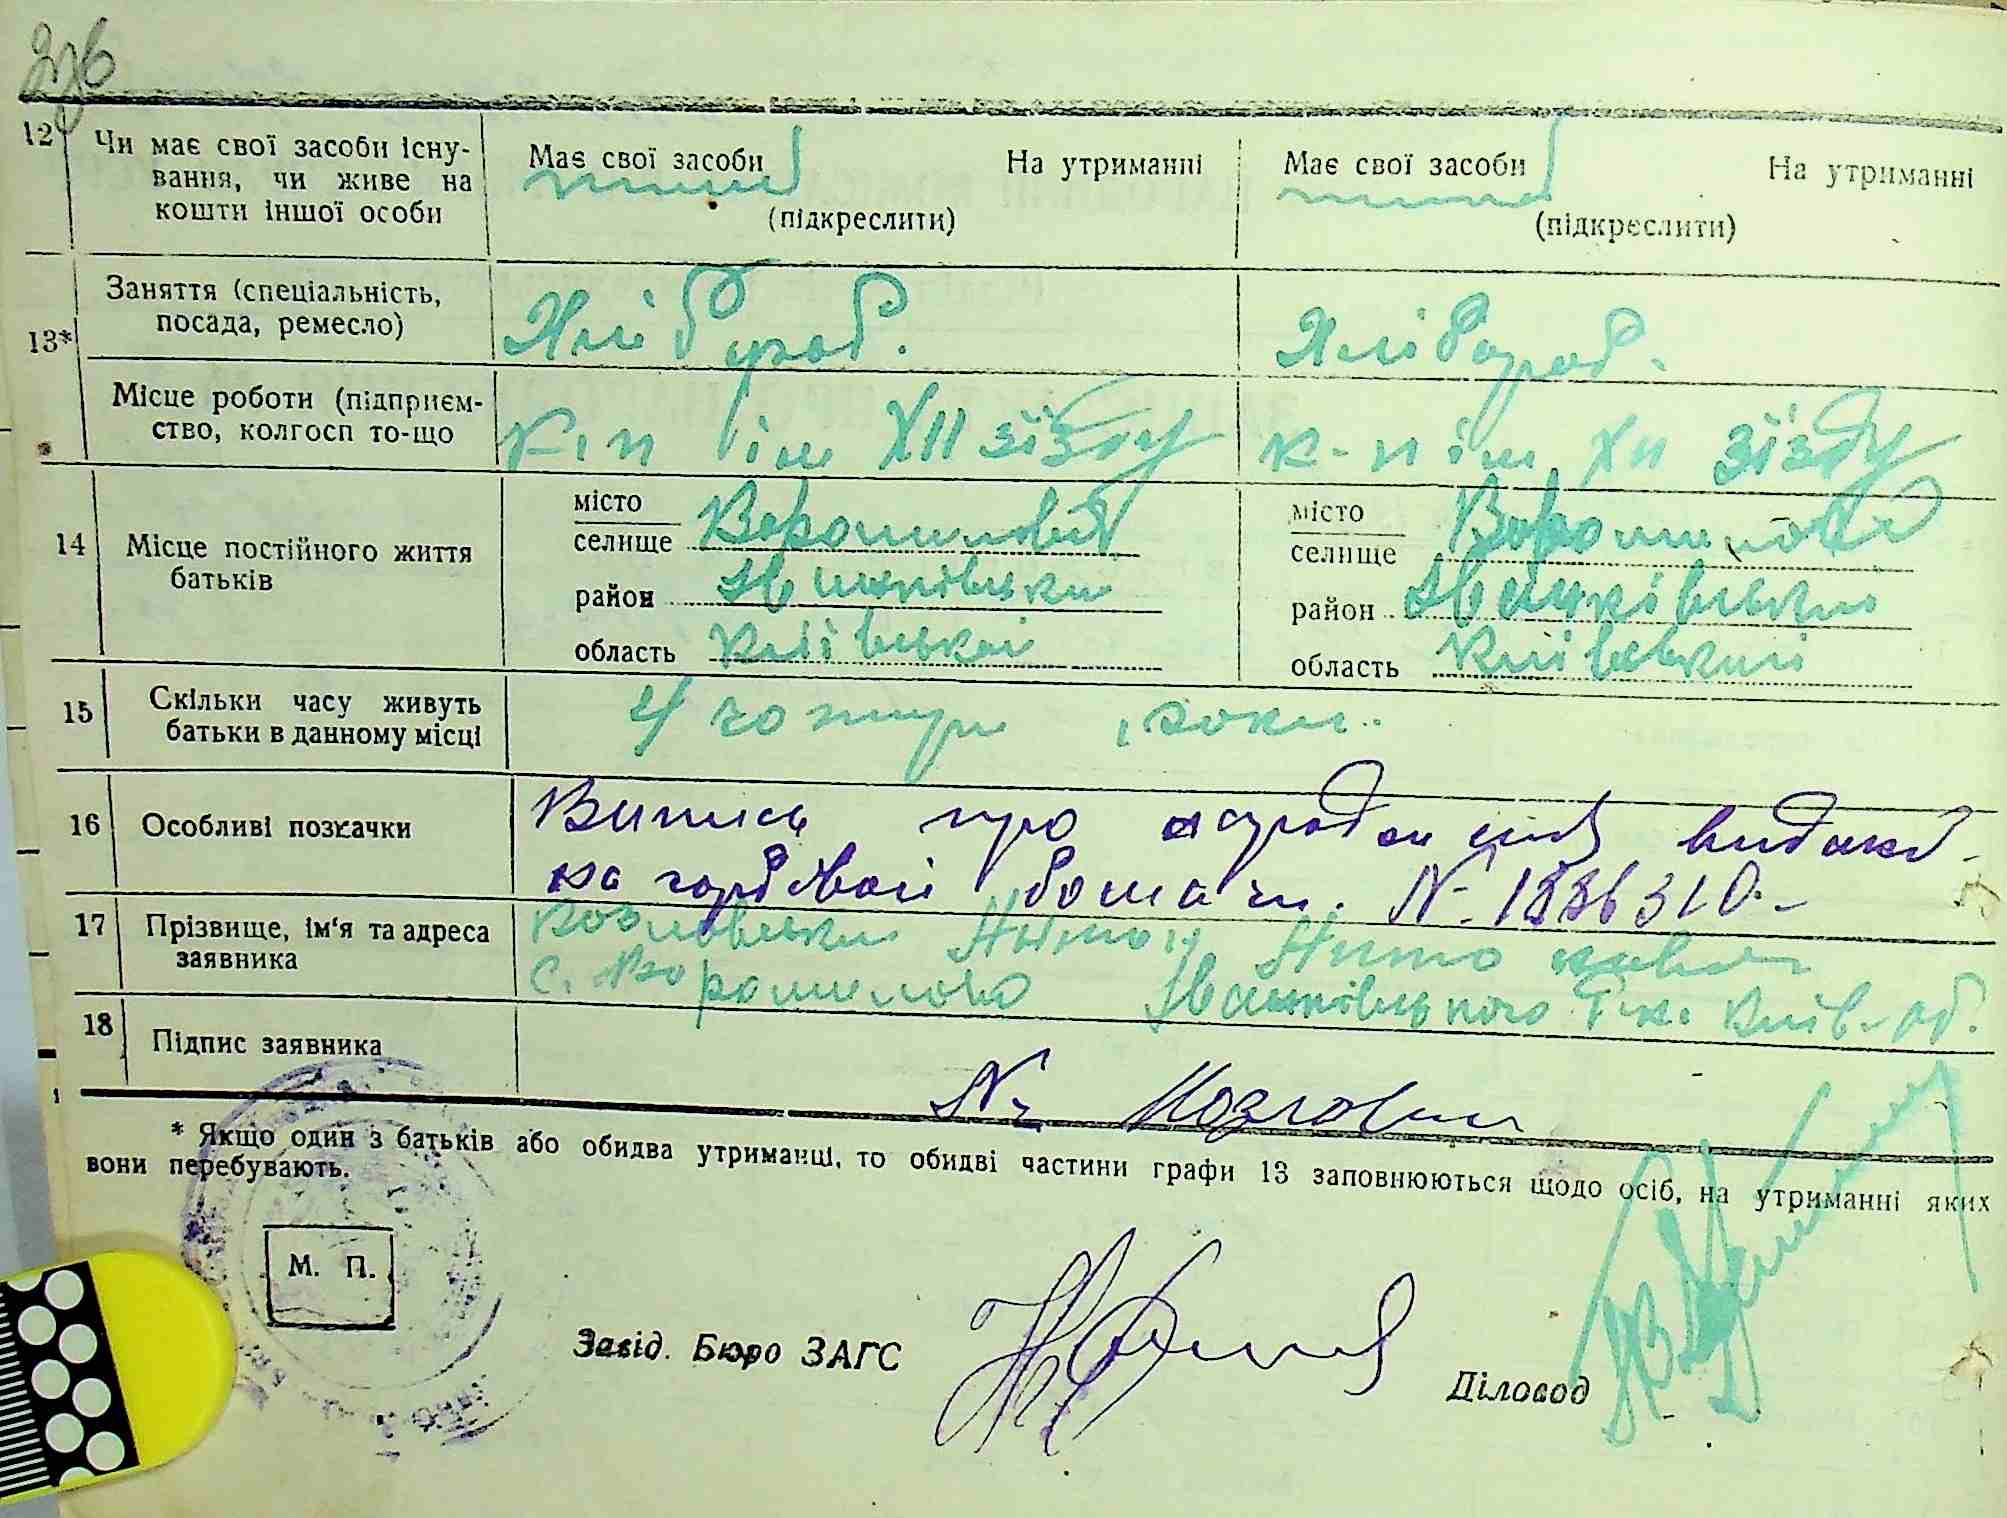 12 Чи має свої засоби існу-
вання, чи живе на
кошти іншої особи
Має свої засоби На утриманні
(підкреслити)
Має свої засоби На утриманні
(підкреслити)
13* Заняття (спеціальність,
посада, ремесло)
Хлібороб.
Хлібороб.
Місце роботи (підприєм-
ство, колгосп то-що
к-п ім XII зїзду
к-п ім XII зїзду
14 Місце постійного життя
батьків
місто
селище Ворошилова
район Іванківський
область Київської
місто
селище Ворошилова
район Іванківський
область Київський
15 Скільки часу живуть
батьки в данному місці
4 чотири роки.
16 Особливі позначки
Випись про народження видана
на гербовой бомаги. № 1536310.-
17 Прізвище, ім'я та адреса
заявника
Козловський Антон
с. Ворошилова Іванківського Київ. об.
18 Підпис заявника
Козловський
* Якщо один з батьків або обидва утриманці, то обидві частини графи 13 заповнюються щодо осіб, на утриманні яких
вони перебувають.
М. П.
Завід. Бюро ЗАГС
Діловод